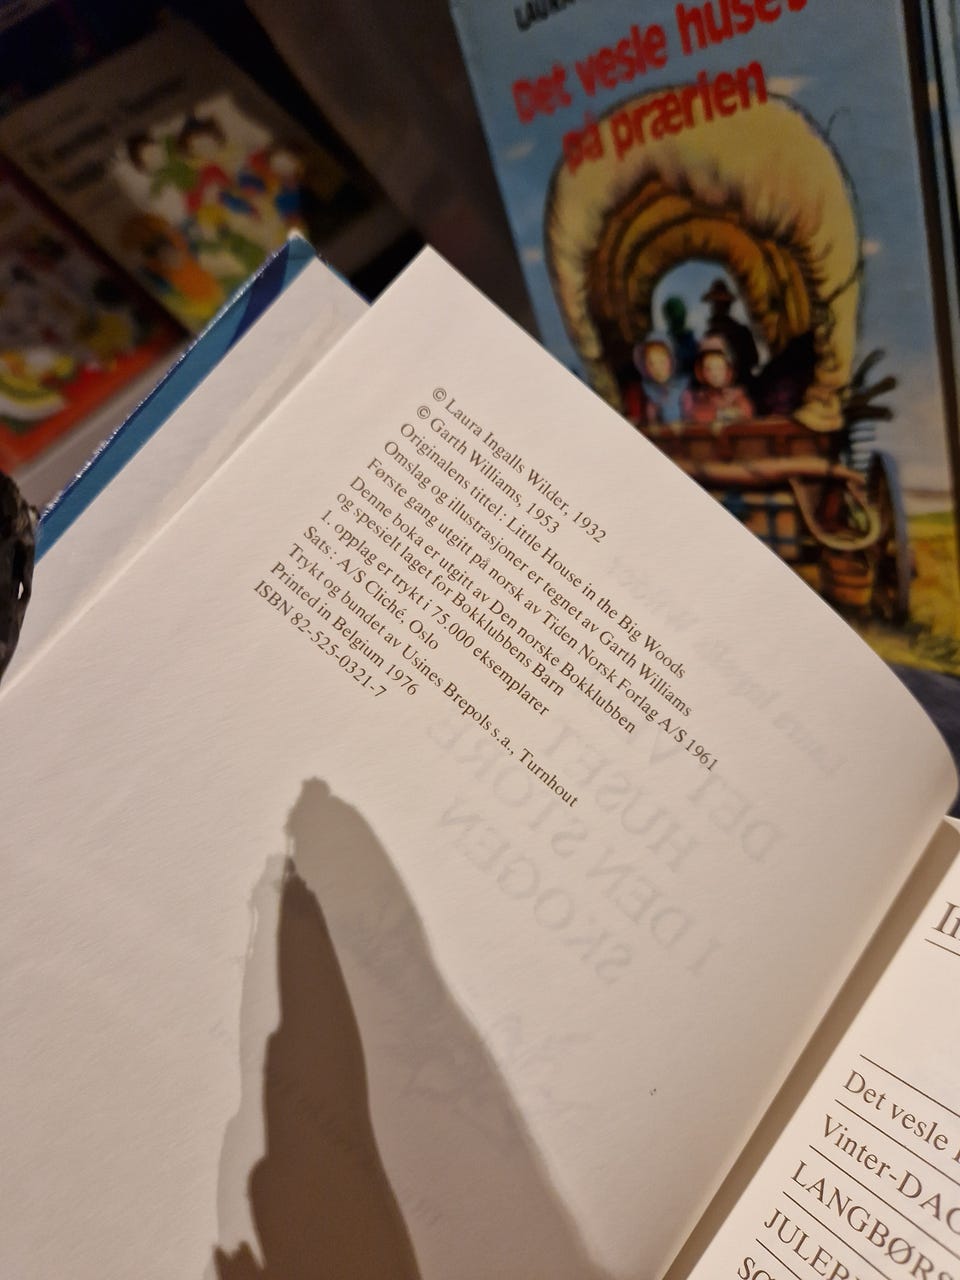 Det vesle huset
på prærien
© Laura Ingalls Wilder, 1932
© Garth Williams, 1953
Originalens tittel: Little House in the Big Woods
Omslag og illustrasjoner er tegnet av Garth Williams
Første gang utgitt på norsk av Tiden Norsk Forlag A/S 1961
Denne boka er utgitt av Den norske Bokklubben
og spesielt laget for Bokklubbens Barn
1. opplag er trykt i 75.000 eksemplarer
Sats: A/S Cliché, Oslo
Trykt og bundet av Usines Brepols s.a., Turnhout
Printed in Belgium 1976
ISBN 82-525-0321-7
DET
HUSET
I DEN STORE
SKOGEN
Det vesle
Vinter-DAG
LANGBØRS
JULEB